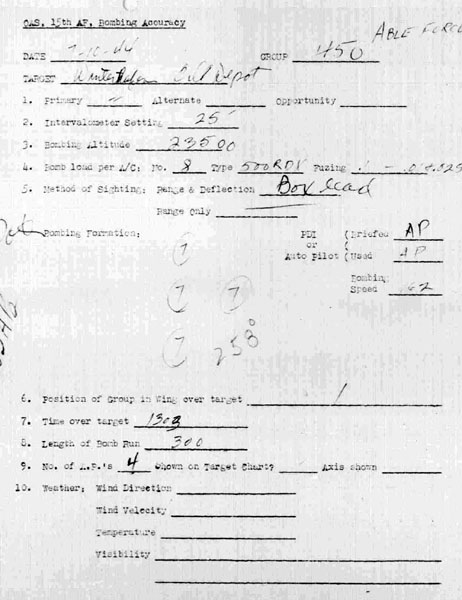 OAS, 15th AF, Bombing Accuracy
ABLE FORCE
DATE 7-10-44 GROUP 450
TARGET Oil Depot
1. Primary Alternate Opportunity
2. Intervalometer Setting 25'
3. Bombing Altitude 23500
4. Bomb load per A/C: No. 8 Type 500 RDX Fuzing .1 - .01+.025
5. Method of Sighting: Range & Deflection Box lead
Range Only
Bombing Formation: PDI (Briefed AP
or
Auto Pilot (Used AP
7
Bombing
Speed 162
7 7
7 258°
6. Position of Group in Wing over target 1
7. Time over target 1303
8. Length of Bomb Run 300
9. No. of A.P.'s 4 Shown on Target Chart? Axis shown
10. Weather: Wind Direction
Wind Velocity
Temperature
Visibility